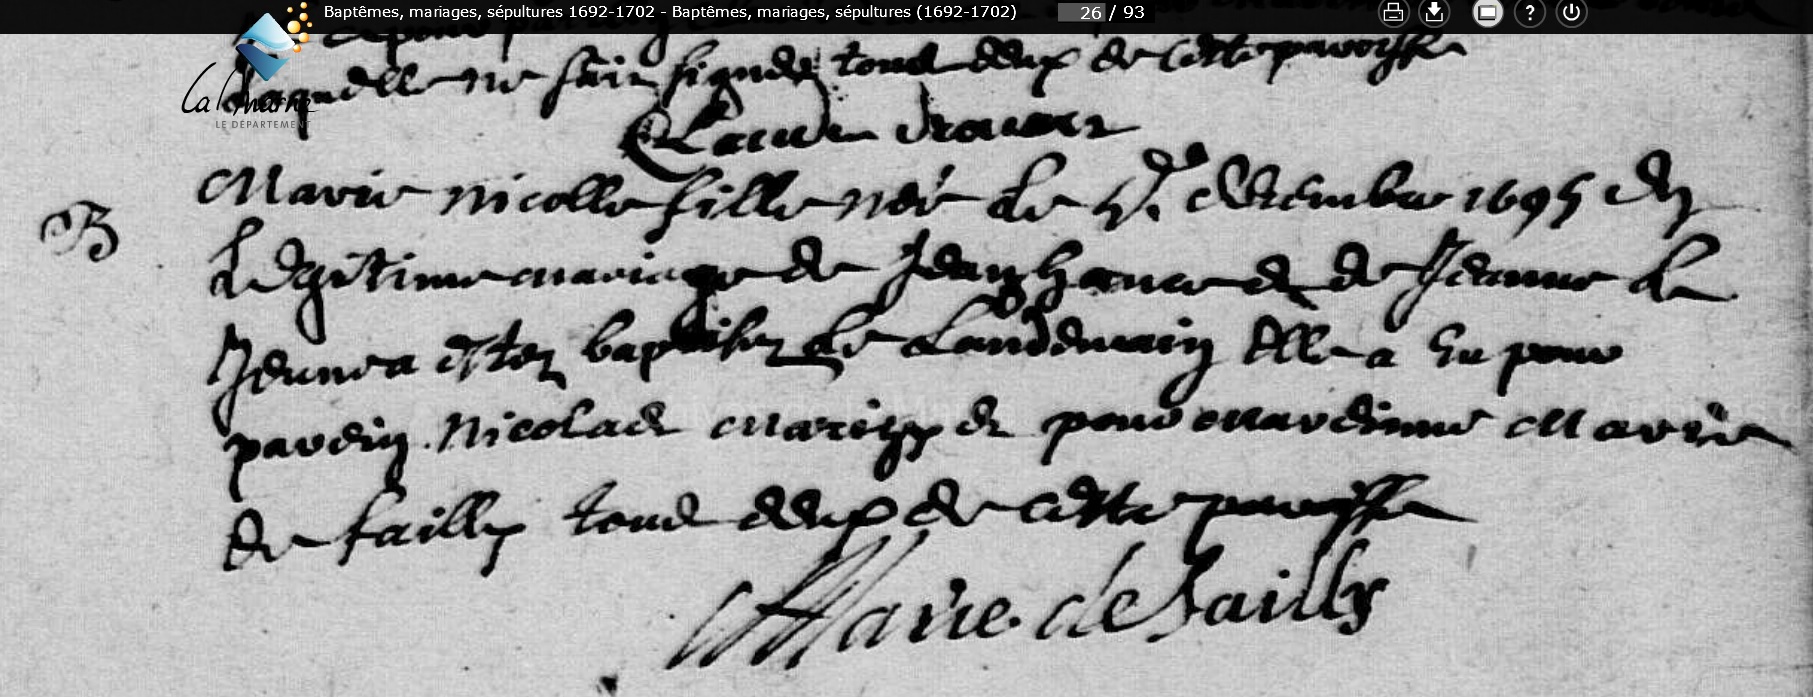 Baptêmes, mariages, sépultures 1692-1702 - Baptêmes, mariages, sépultures (1692-1702) 26 / 93
La Marne
LE DÉPARTEMENT
laquelle ne scait signer tous deux de cette paroisse
Claude
B
Marie Nicolle fille née le decembre 1695 du
Legitime mariage de Jean et de Jeanne le
Jeune a estez baptisez le Landemain Elle a Eu pour
parein Nicolas et pour mareinne Marie
de failly tous deux de cette paroisse
Marie de failly